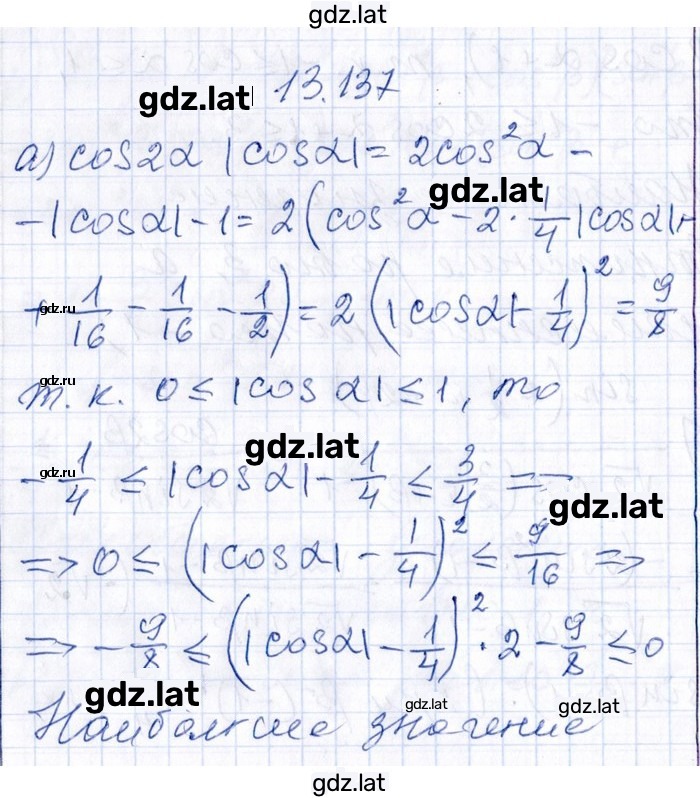 gdz.lat
gdz.lat 13.137
а) cos2α |cosα| = 2cos²α –
gdz.lat
–|cosα| – 1 = 2(cos²α – 2 · 1/4 |cosα| +
gdz.ru
+ 1/16 – 1/16 – 1/2) = 2(|cosα| – 1/4)² = 9/8
gdz.ru
т. к. 0 ≤ |cosα| ≤ 1, то
gdz.lat
gdz.ru
– 1/4 ≤ |cosα| – 1/4 ≤ 3/4 =>
gdz.lat
=> 0 ≤ (|cosα| – 1/4)² ≤ 9/16 =>
=> – 9/8 ≤ (|cosα| – 1/4)² · 2 – 9/8 ≤ 0
gdz.lat
gdz.lat
gdz.lat
Наибольшее значение
gdz.lat